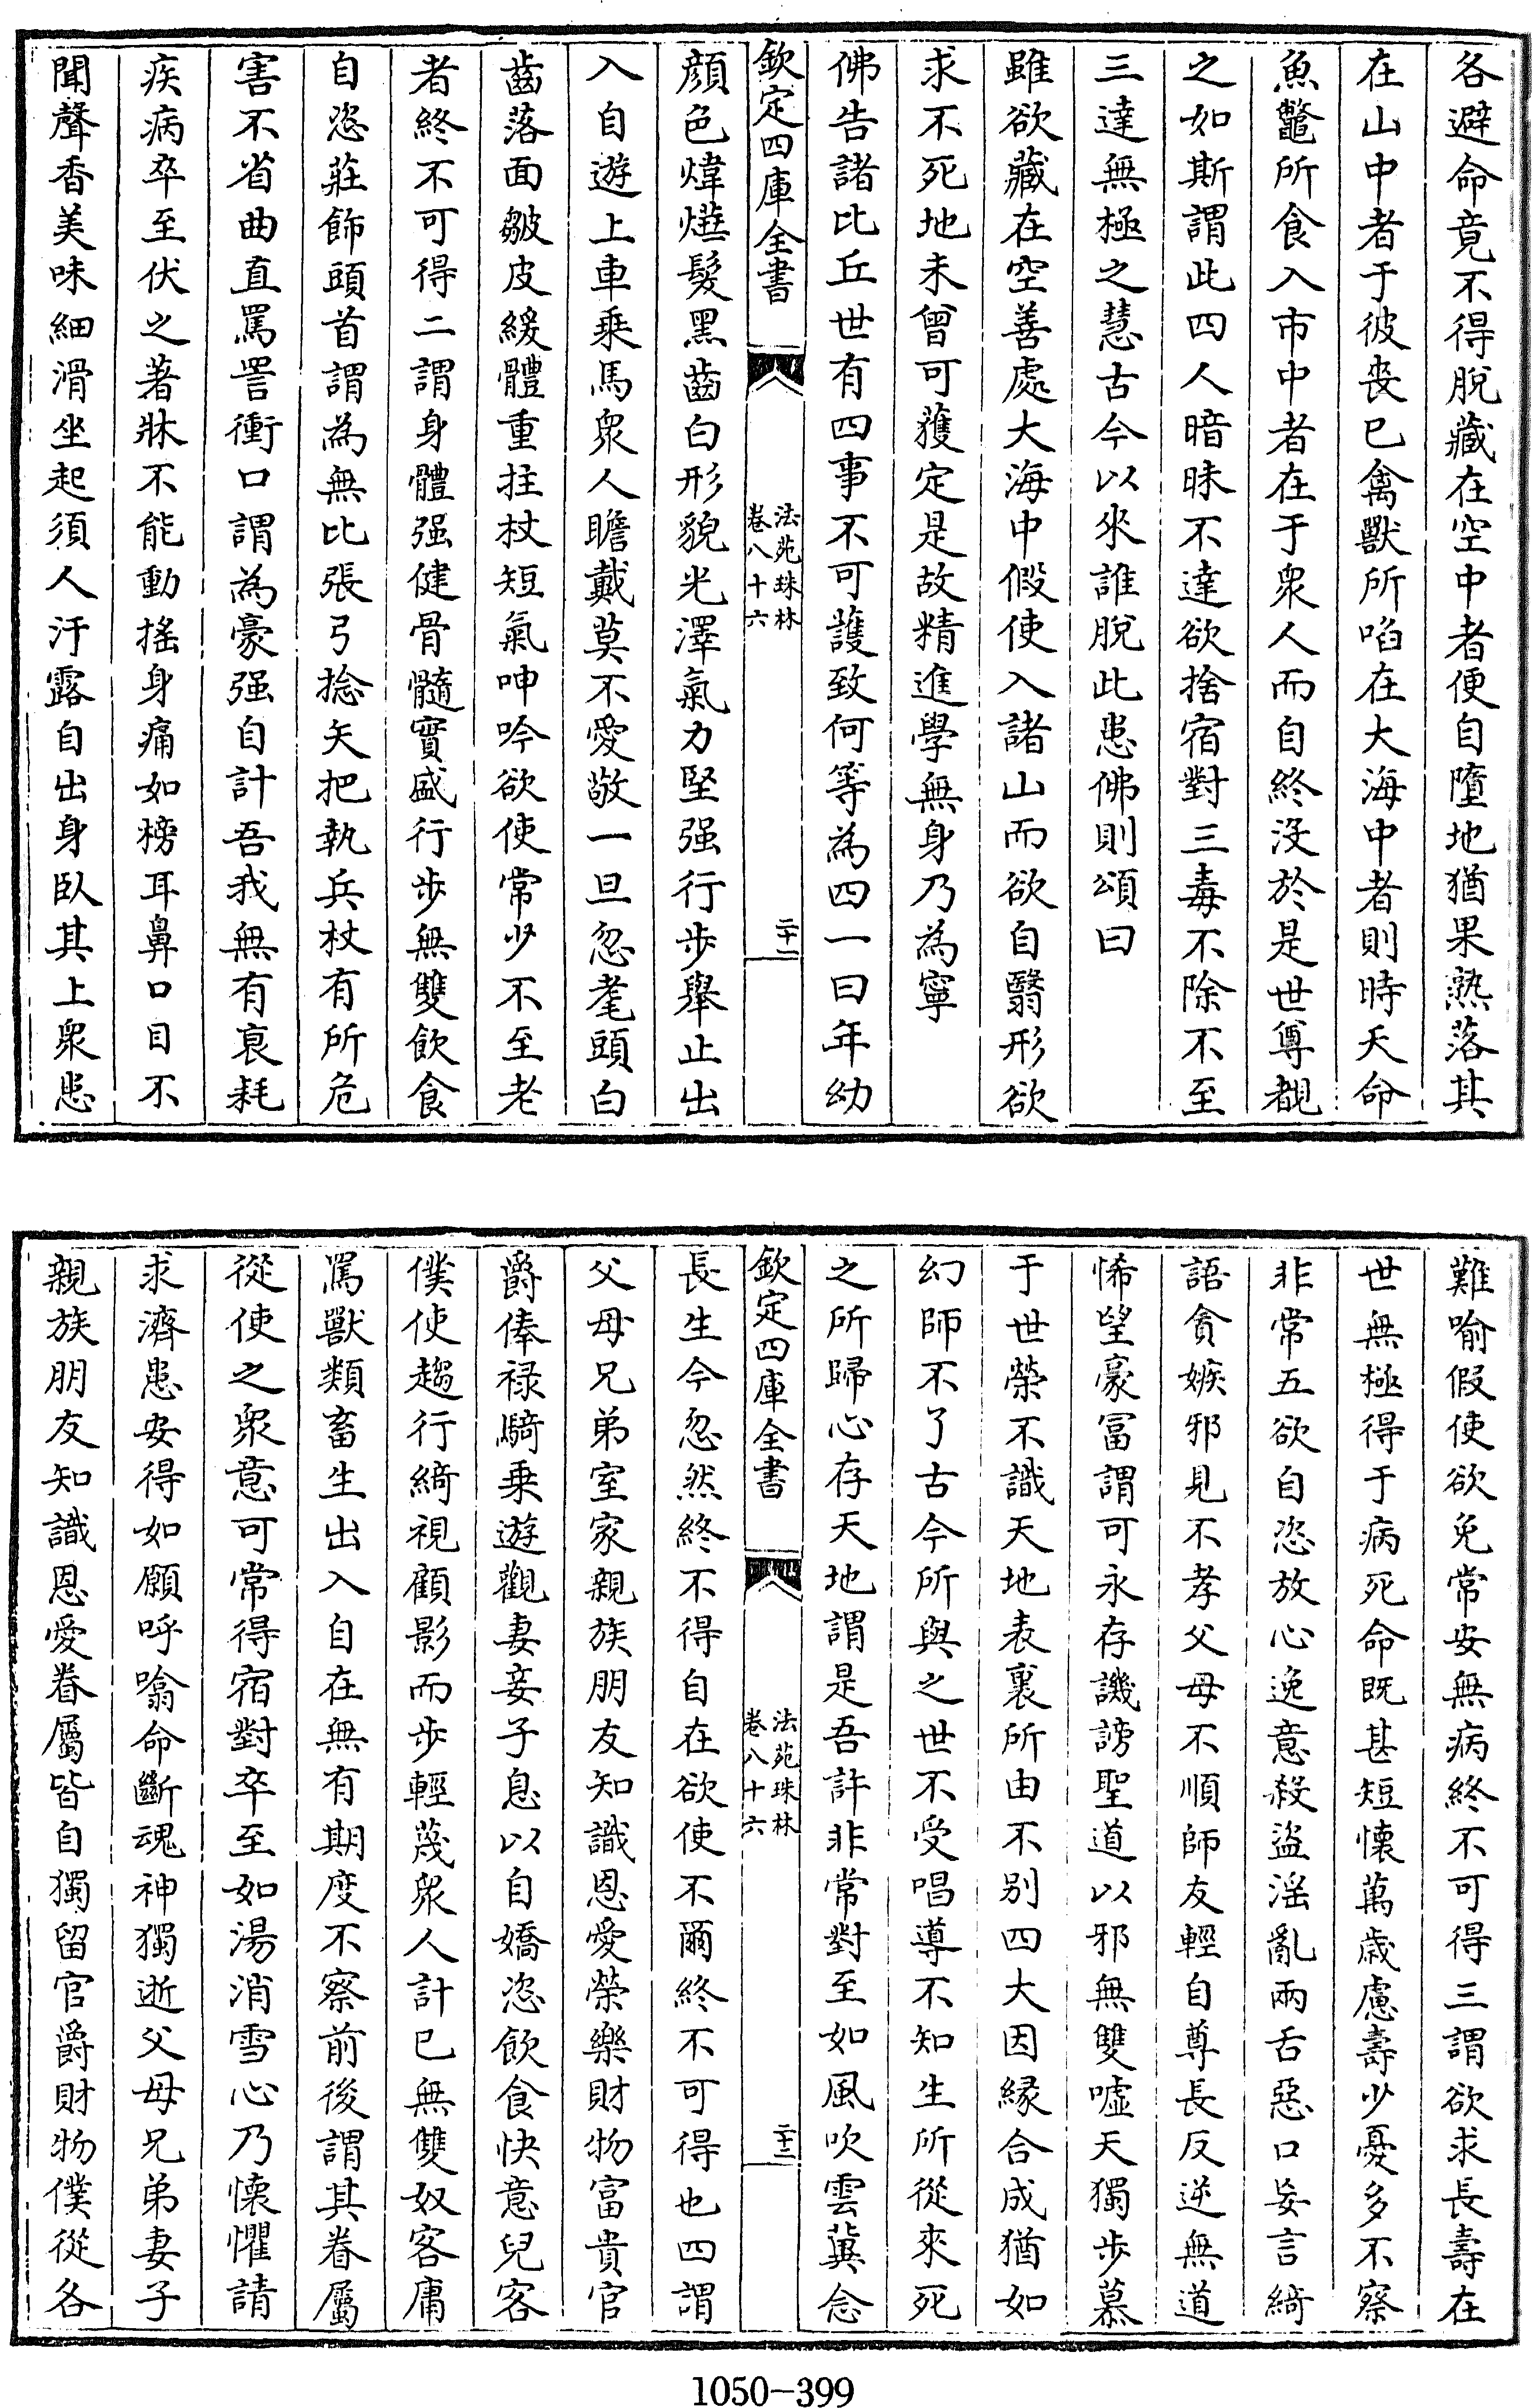 各避命竟不得脫藏在空中者便自墮地猶果熟落其
在山中者于彼喪已禽獸所啗在大海中者則時夭命
魚鼈所食入市中者在于衆人而自終沒於是世尊覩
之如斯謂此四人暗昧不達欲捨宿對三毒不除不至
三達無極之慧古今以來誰脫此患佛則頌曰
雖欲藏在空善處大海中假使入諸山而欲自翳形欲
求不死地未曾可獲定是故精進學無身乃為寧
佛告諸比丘世有四事不可護致何等為四一曰年幼
欽定四庫全書
法苑珠林
卷八十六
二十一
顏色煒燁髮黑齒白形貌光澤氣力堅强行步舉止出
入自遊上車乘馬衆人瞻戴莫不愛敬一旦忽耄頭白
齒落面皺皮緩體重拄杖短氣呻吟欲使常少不至老
者終不可得二謂身體强健骨髓實盛行步無雙飲食
自恣莊飾頭首謂為無比張弓捻矢把執兵杖有所危
害不省曲直罵詈衝口謂為豪强自計吾我無有衰耗
疾病卒至伏之著牀不能動搖身痛如榜耳鼻口目不
聞聲香美味細滑坐起須人汙露自出身臥其上衆患
難喻假使欲免常安無病終不可得三謂欲求長壽在
世無極得于病死命既甚短懷萬歲慮壽少憂多不察
非常五欲自恣放心逸意殺盜淫亂兩舌惡口妄言綺
語貪嫉邪見不孝父母不順師友輕自尊長反逆無道
悕望豪冨謂可永存譏謗聖道以邪無雙噓天獨步慕
于世榮不識天地表裏所由不别四大因緣合成猶如
幻師不了古今所與之世不受唱導不知生所從來死
之所歸心存天地謂是吾許非常對至如風吹雲冀念
欽定四庫全書
法苑珠林
卷八十六
二十二
長生今忽然終不得自在欲使不爾終不可得也四謂
父母兄弟室家親族朋友知識恩愛榮樂財物富貴官
爵俸禄騎乗遊觀妻妾子息以自嬌恣飲食快意兒客
僕使趨行綺視顧影而步輕蔑衆人計已無雙奴客庸
罵獸類畜生出入自在無有期度不察前後謂其眷屬
從使之衆意可常得宿對卒至如湯消雪心乃懷懼請
求濟患安得如願呼噏命斷魂神獨逝父母兄弟妻子
親族朋友知識恩愛眷屬皆自獨留官爵財物僕從各
1050-399